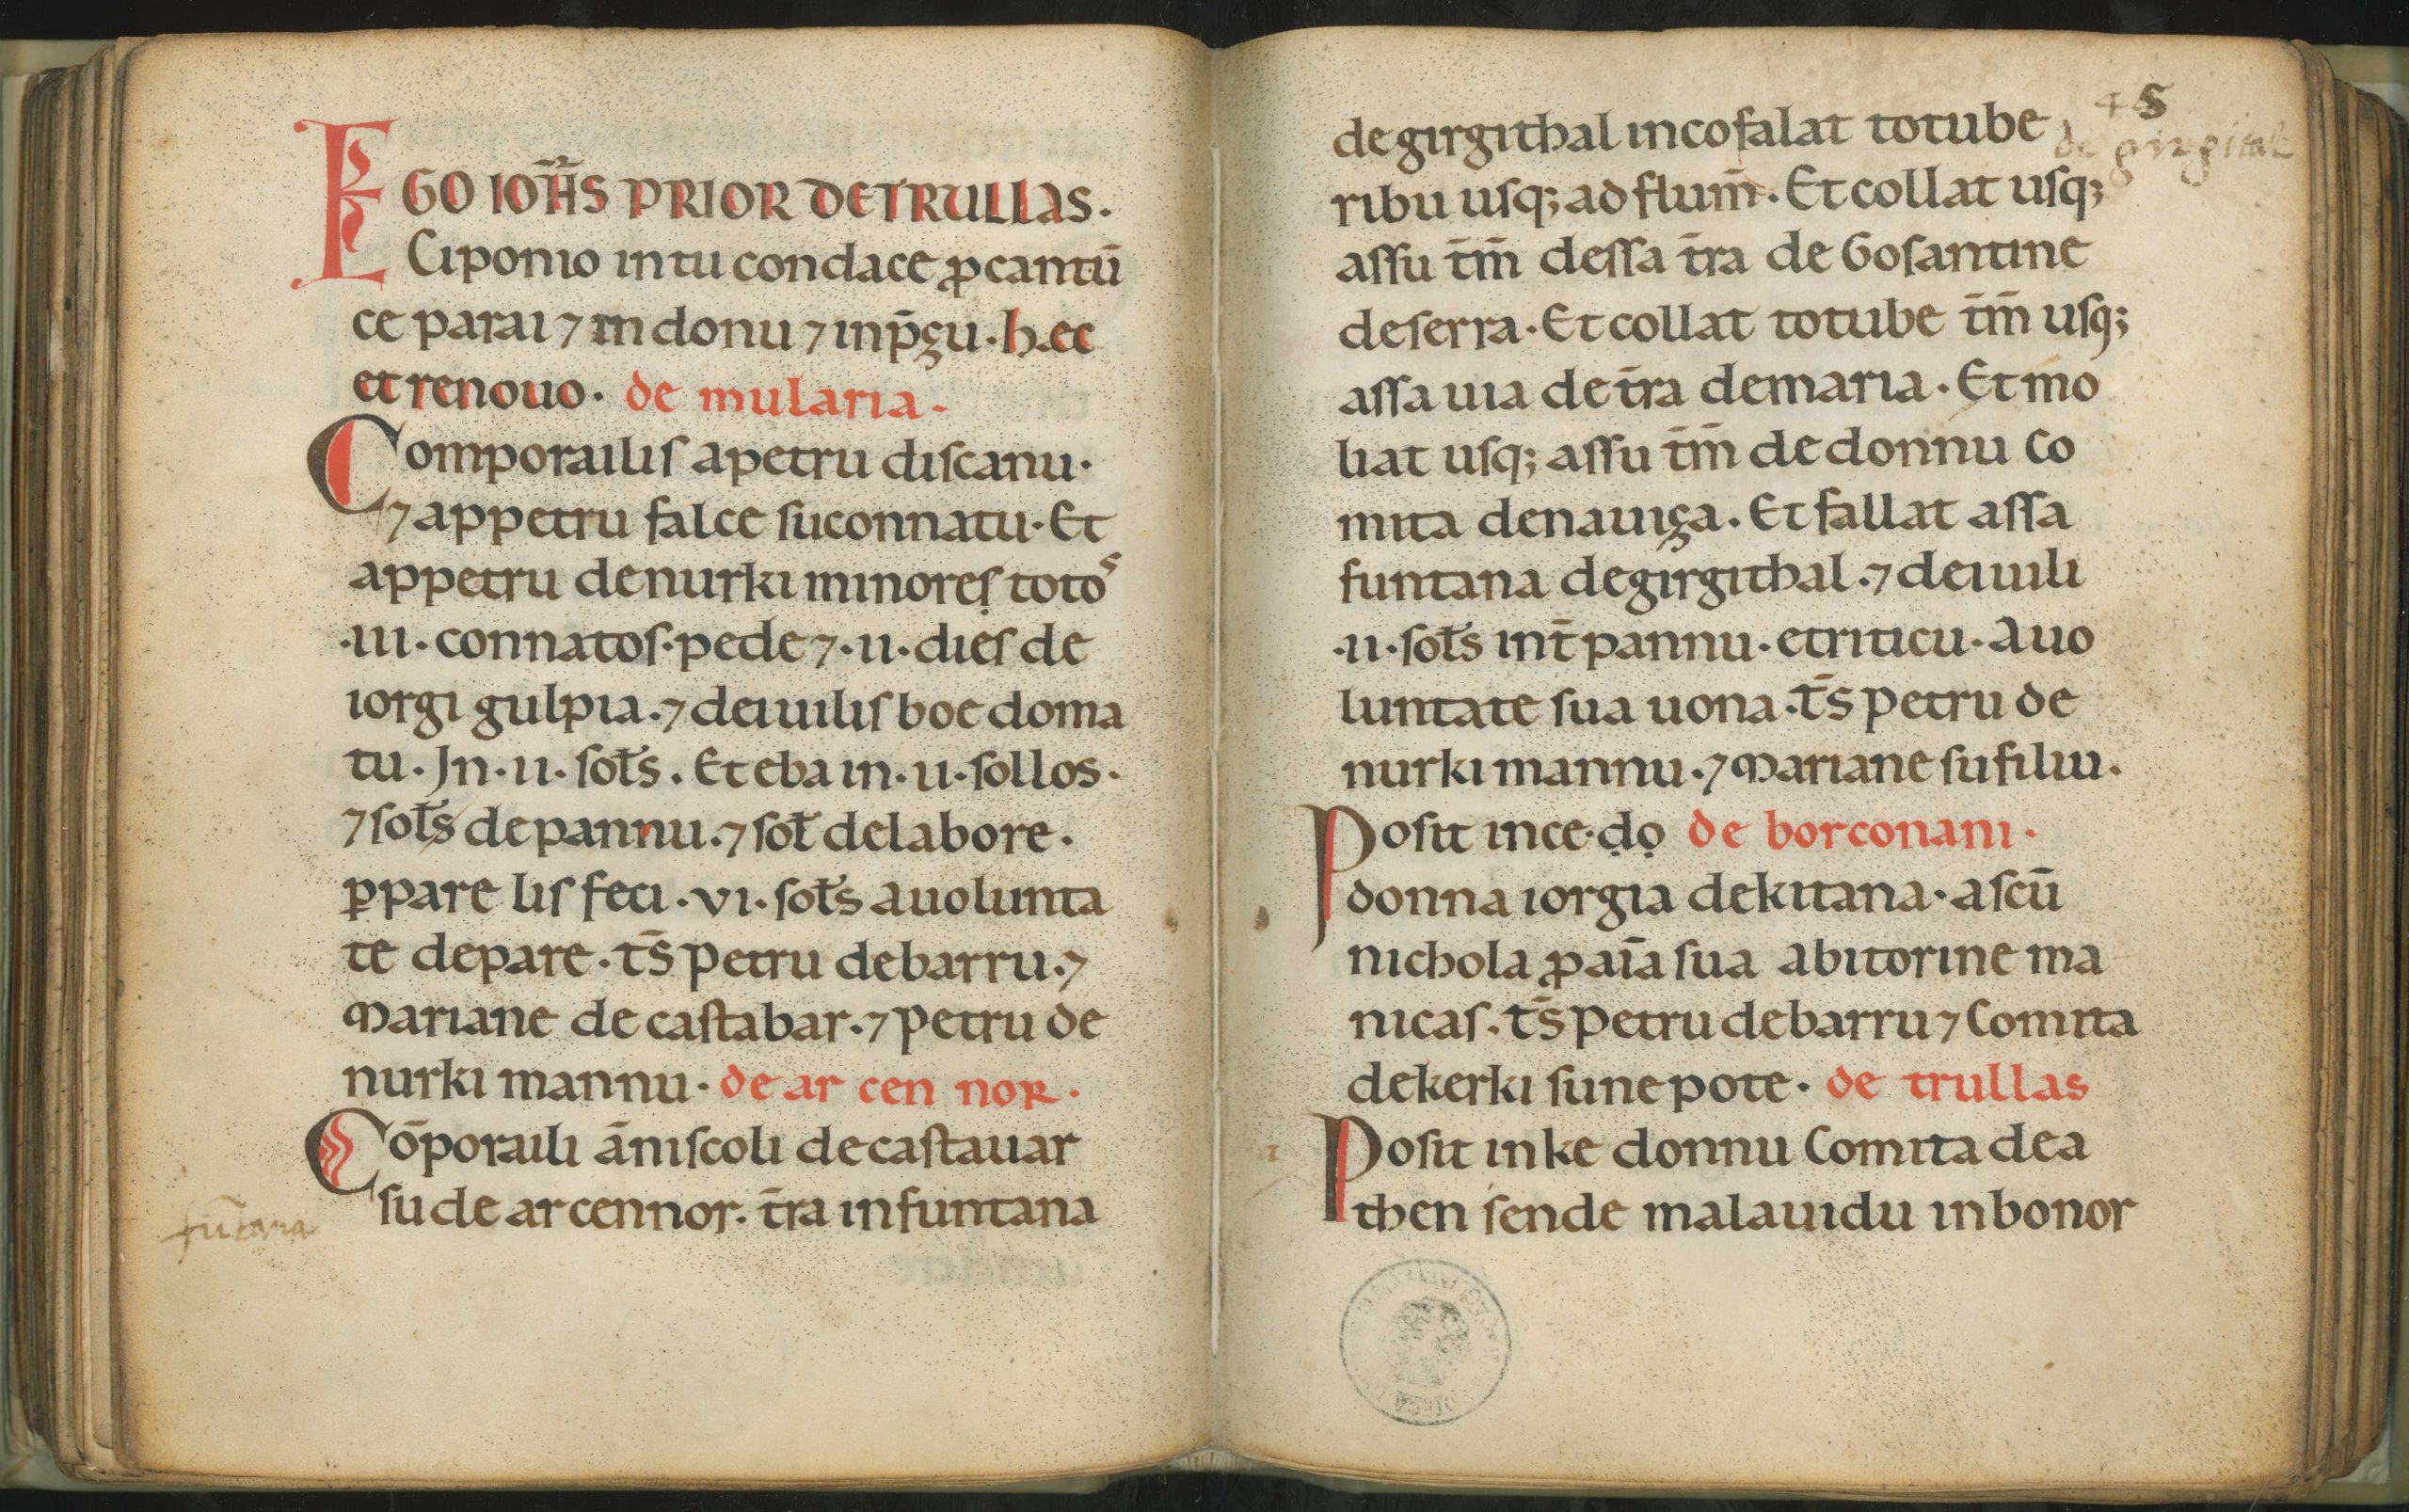 EGO IOH̅S PRIOR DE TRULLAS.
Ciponio in tu condace ꝓ cantu̅
ce parai ⁊ in donu ⁊ in p̅çu. hec
et renouo. de mularia.
Comporailis a petru discanu.
⁊ appetru falce su connatu. Et
appetru de nurki minoreṣ totos
.III. connatos. pede ⁊ .II. dies de
iorgi gulpia. ⁊ deiuilis boe doma
tu. In .II. sol̅s. Et eba in .II. sollos.
⁊ sol̅s de pannu. ⁊ sol̅ de labore.
ꝑpare lis feci .VI. sol̅s a uolunta
te de pare. t̅s Petru de barru. ⁊
Mariane de castabar. ⁊ Petru de
nurki mannu. de ar cen nor.
Co̅poraili a̅niscoli de castauar
su de arcennor. t̅ra in funtana
fu̅tana
45
de girgithal in cofalat totube
de girgital
ribu usq; ad flum̅. Et collat usq;
assu t̅m̅ dessa t̅ra de Gosantine
de serra. Et collat totube t̅m̅ usq;
assa uia de t̅ra de maria. Et mo
liat usq; assu t̅m̅ de donnu Co
mita de nauiça. Et fallat assa
funtana de girgithal. ⁊ deiuili
.II. sol̅s int̅ pannu. e triticu. A uo
luntate sua uona. t̅s Petru de
nurki mannu. ⁊ Mariane su filiu.
Posit ince. ḍọ de borconani.
donna iorgia de kitana. a scu̅
nichola ꝓ ai̅a sua a bitorine ma
nicas. t̅s Petru de barru ⁊ Comita
de kerki su nepote. de trullas
Posit in ke donnu Comita de a
then sende malauidu in bonor